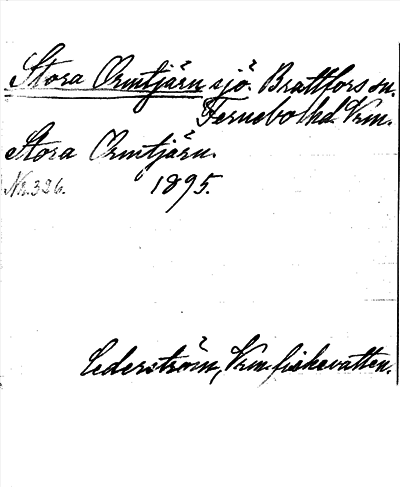 Stora Ormtjärn sjö. Brattfors sn.
Fernebo hd. Vrm.
Stora Ormtjärn.
Nr. 326. 1895.
Cederström, Vrm. fiskevatten.